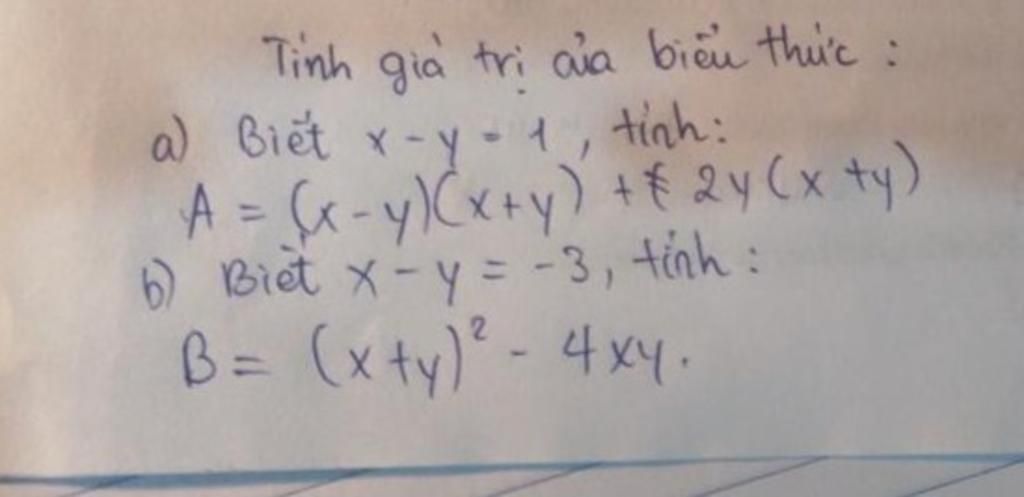 Tính giá trị của biểu thức :
a) Biết x - y = 1 , tính:
A = (x - y)(x + y) + 2y (x + y)
b) Biết x - y = -3 , tính :
B = (x + y)² - 4xy .